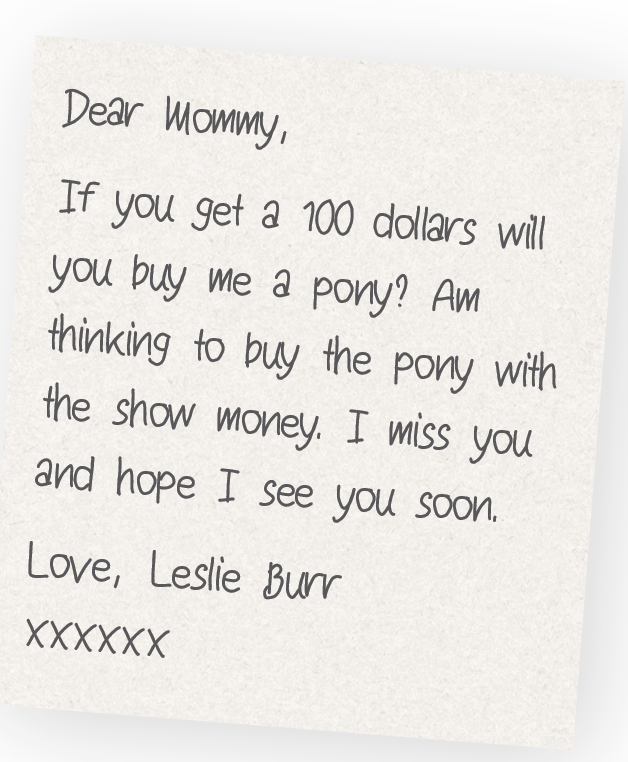 Dear Mommy,
If you get a 100 dollars will
you buy me a pony? Am
thinking to buy the pony with
the show money. I miss you
and hope I see you soon.
Love, Leslie Burr
xxxxxx